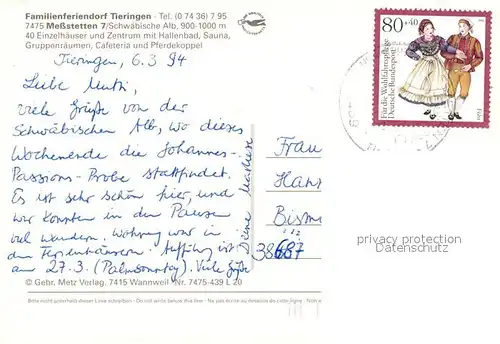 Familienferiendorf Tieringen · Tel. (0 74 36) 7 95
7475 Meßstetten 7/Schwäbische Alb, 900-1000 m
40 Einzelhäuser und Zentrum mit Hallenbad, Sauna,
Gruppenräumen, Cafeteria und Pferdekoppel
Tieringen, 6.3.94
Liebe Mutti,
viele Grüße von der
Schwäbischen Alb, wo dieses
Wochenende die Johannes-
Passions-Probe stattfindet.
Es ist sehr schön hier, und
wir konnten in den Pausen
viel wandern. Wohnung war in
den Ferienhäusern. Aufführung ist
am 27.3. (Palmsonntag). Viele Grüße
Deine Marliese
© Gebr. Metz Verlag, 7415 Wannweil Nr. 7475-439 L 20
Bitte nicht unterhalb dieser Linie schreiben - Do not write below this line - Ne pas écrire au dessous de cette ligne - Not
80+40
Für die Wohlfahrtspflege
Deutsche Bundespost
Föhr
Frau
Hans
Bism
38687
privacy protection
Datenschutz